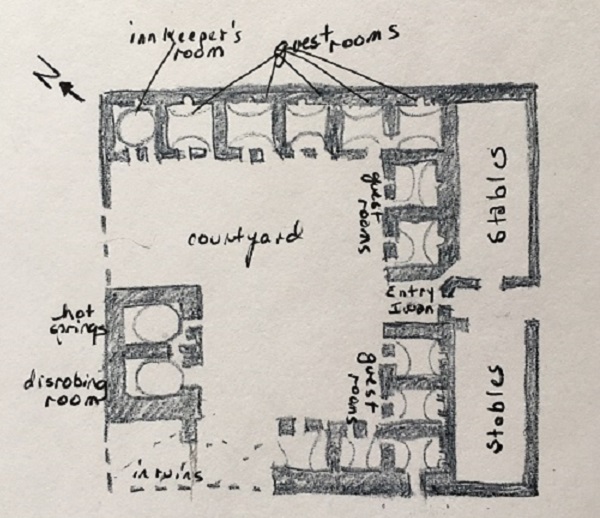 innkeeper's
room
guest rooms
N
stables
guest
rooms
courtyard
Entry
Iwan
hot
springs
disrobing
room
guest
rooms
stables
in ruins